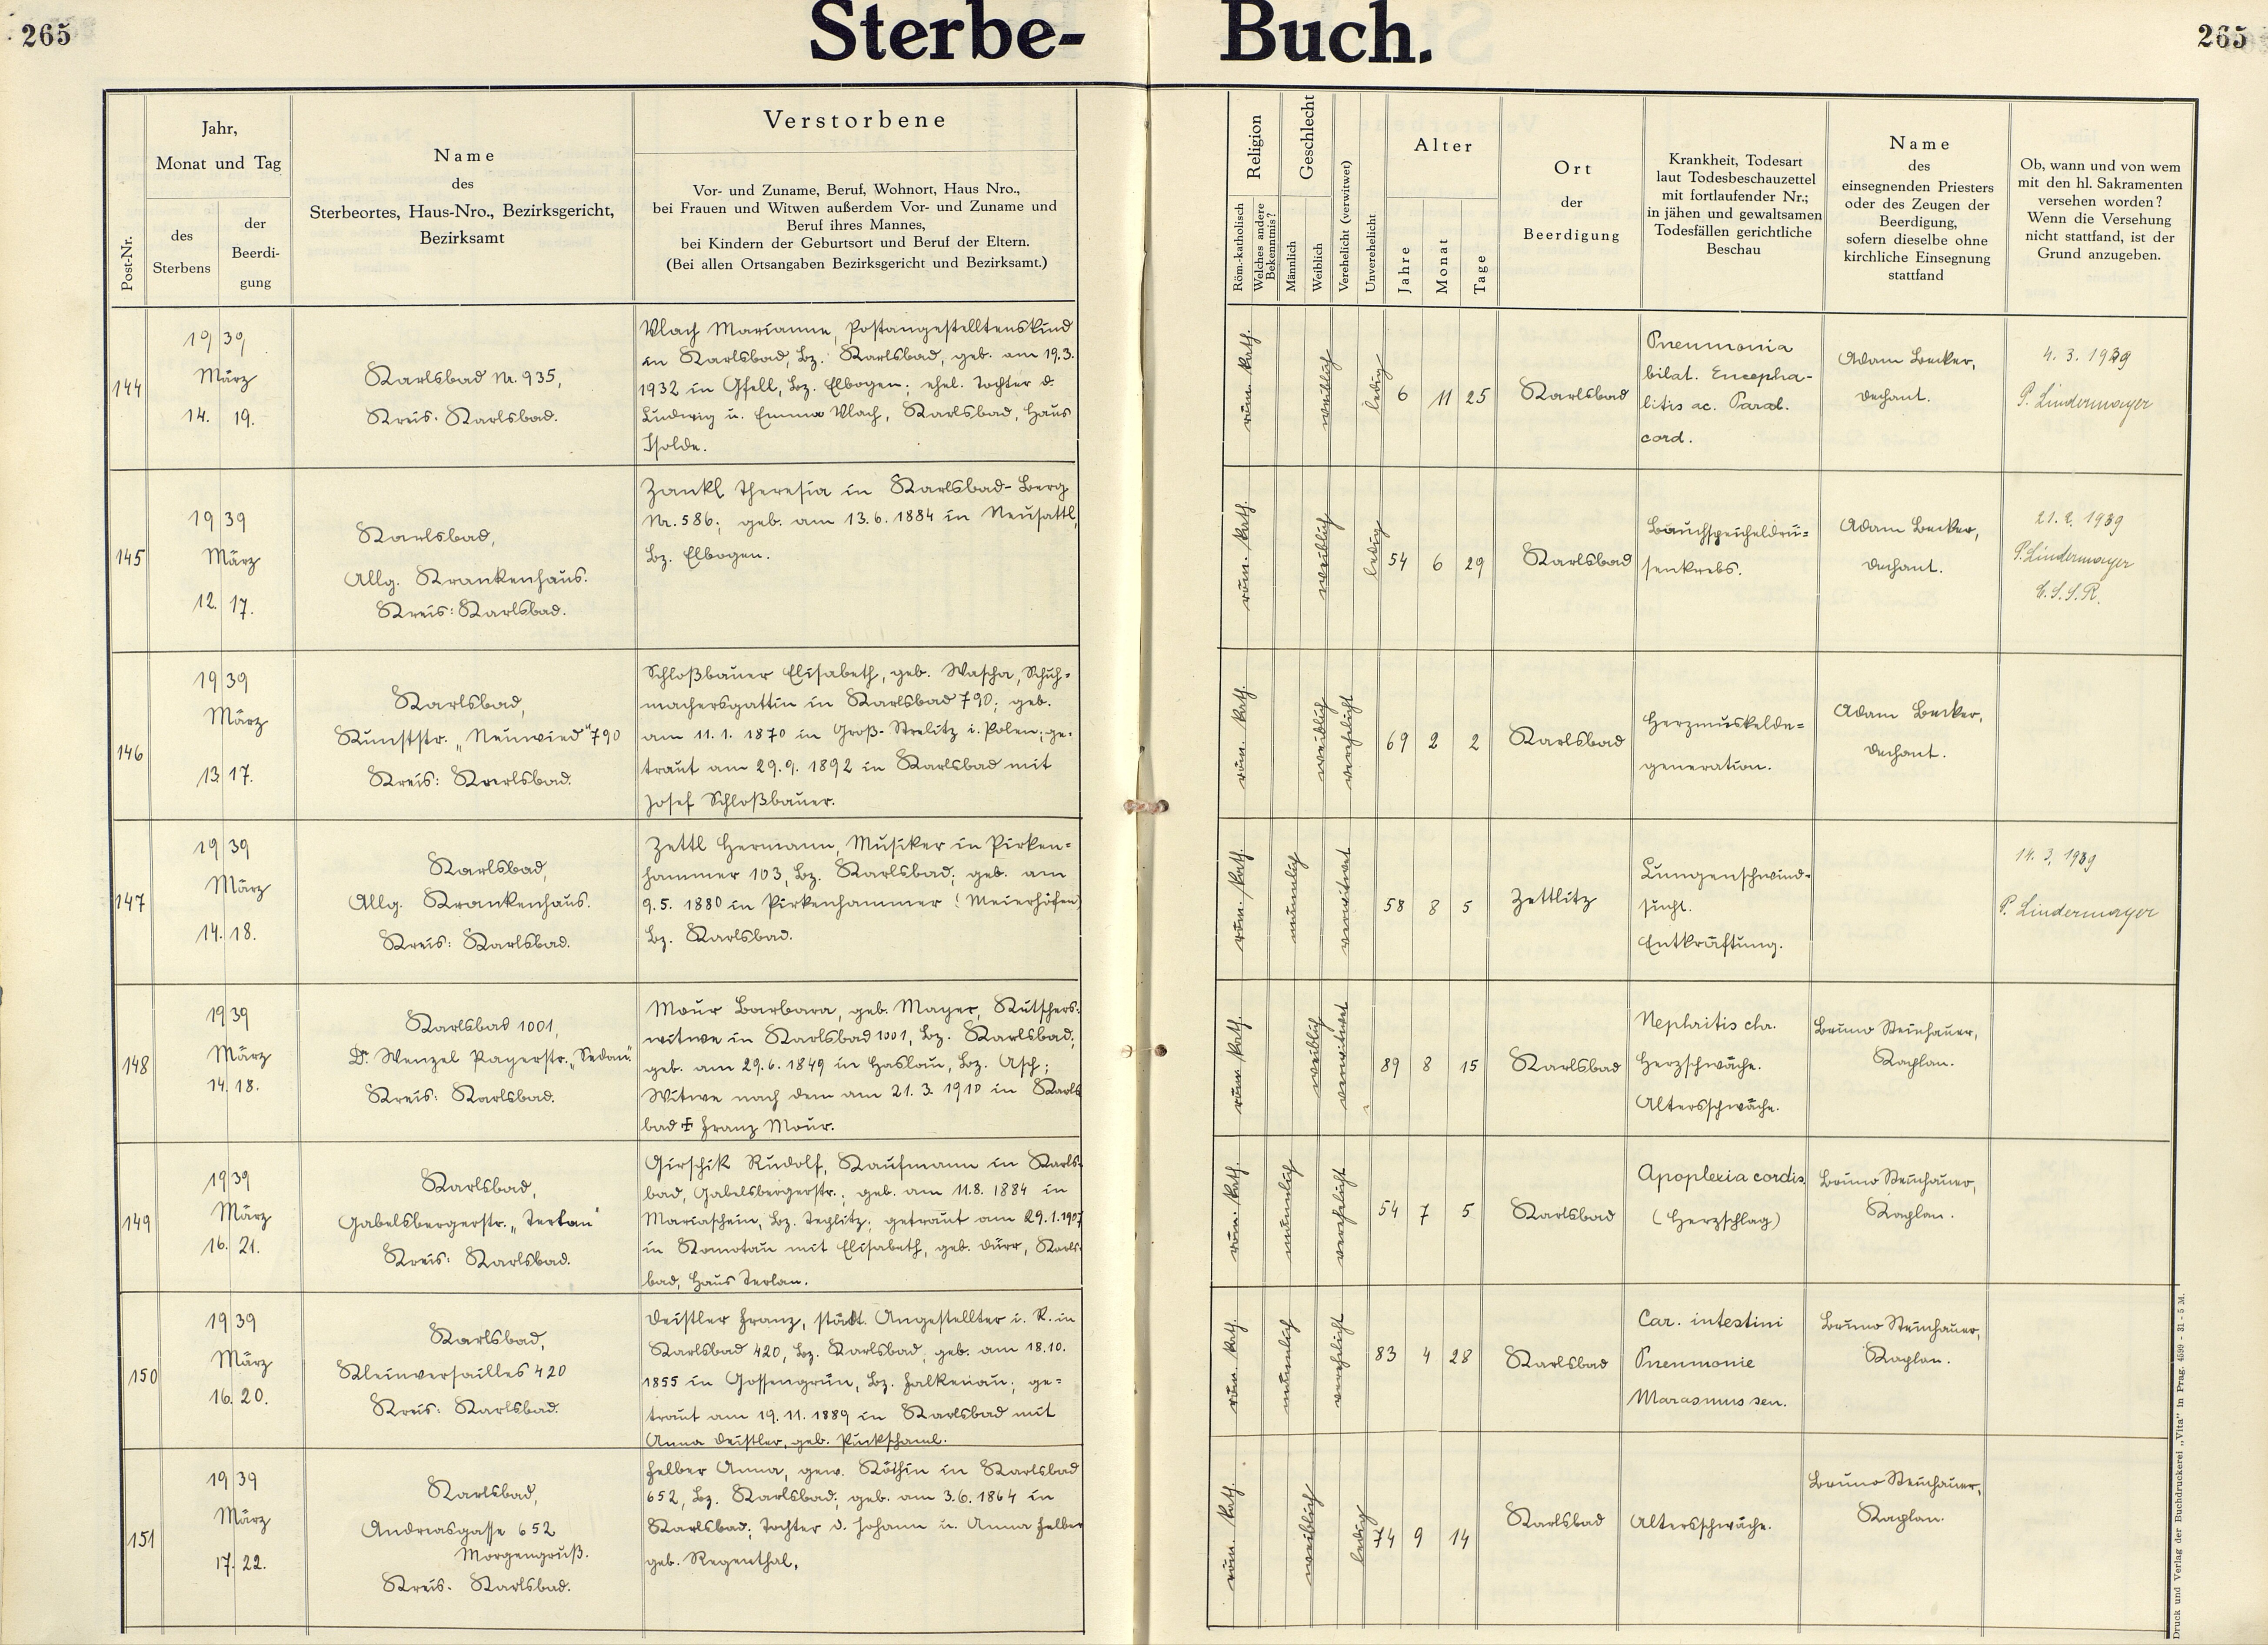 265
Sterbe-Buch.
265
Post-Nr.
Jahr,
Monat und Tag
des
Sterbens
der
Beerdi-
gung
Name
des
Sterbeortes, Haus-Nro., Bezirksgericht,
Bezirksamt
Verstorbene
Vor- und Zuname, Beruf, Wohnort, Haus Nro.,
bei Frauen und Witwen außerdem Vor- und Zuname und
Beruf ihres Mannes,
bei Kindern der Geburtsort und Beruf der Eltern.
(Bei allen Ortsangaben Bezirksgericht und Bezirksamt.)
Religion
Röm.-katholisch
Welches andere
Bekenntnis?
Geschlecht
Männlich
Weiblich
Verehelicht (verwitwet)
Unverehelicht
Alter
Jahre
Monat
Tage
Ort
der
Beerdigung
Krankheit, Todesart
laut Todesbeschauzettel
mit fortlaufender Nr.;
in jähen und gewaltsamen
Todesfällen gerichtliche
Beschau
Name
des
einsegnenden Priesters
oder des Zeugen der
Beerdigung,
sofern dieselbe ohne
kirchliche Einsegnung
stattfand
Ob, wann und von wem
mit den hl. Sakramenten
versehen worden?
Wenn die Versehung
nicht stattfand, ist der
Grund anzugeben.
144
1939
März
14. 19.
Karlsbad Nr. 935,
Kreis: Karlsbad.
Vlach Marianne, Postangestelltenskind
in Karlsbad, Bz. Karlsbad, geb. am 19.3.
1932 in Gfell, Bz. Elbogen; ehel. Tochter d.
Ludwig u. Emma Vlach, Karlsbad, Haus
Isolde.
röm. kath.
weiblich
ledig
6 11 25
Karlsbad
Pneumonia
bilat. Encepha-
litis ac. Paral.
cord.
Adam Becker,
Dechant.
4. 3. 1939
P. Lindermayer
145
1939
März
12. 17.
Karlsbad,
Allg. Krankenhaus.
Kreis: Karlsbad.
Zankl Theresia in Karlsbad-Berg
Nr. 586; geb. am 13.6.1884 in Neusattl,
Bz. Elbogen.
röm. kath.
weiblich
ledig
54 6 29
Karlsbad
Bauchspeicheldrü-
senkrebs.
Adam Becker,
Dechant.
21. 2. 1939
P. Lindermayer
C. S. S. R.
146
1939
März
13. 17.
Karlsbad,
Kunststr. „Neuwied" 790
Kreis: Karlsbad.
Schloßbauer Elisabeth, geb. Wascha, Schuh-
machersgattin in Karlsbad 790; geb.
am 11. 1. 1870 in Groß-Strelitz i. Polen; ge-
traut am 29.9. 1892 in Karlsbad mit
Josef Schloßbauer.
röm. kath.
weiblich
verehelicht
69 2 2
Karlsbad
Herzmuskelde-
generation.
Adam Becker,
Dechant.
147
1939
März
14. 18.
Karlsbad,
Allg. Krankenhaus.
Kreis: Karlsbad.
Zettl Hermann, Musiker in Pirken-
hammer 103, Bz. Karlsbad; geb. am
9.5. 1880 in Pirkenhammer (Meierhöfen)
Bz. Karlsbad.
röm. kath.
männlich
verwitwet
58 8 5
Zettlitz
Lungenschwind-
sucht.
Entkräftung.
14. 3. 1939
P. Lindermayer
148
1939
März
14. 18.
Karlsbad 1001,
Dr. Wenzel Pagerstr. „Sedan."
Kreis: Karlsbad.
Mour Barbara, geb. Mayer, Kutschers-
witwe in Karlsbad 1001, Bz. Karlsbad;
geb. am 29.6. 1849 in Haslau, Bz. Asch;
Witwe nach dem am 21. 3. 1910 in Karls
bad ‡ Franz Mour.
röm. kath.
weiblich
verwitwet
89 8 15
Karlsbad
Nephritis chr.
Herzschwäche.
Altersschwäche.
Bruno Steinhauer,
Kaplan.
149
1939
März
16. 21.
Karlsbad,
Gabelsbergerstr. „Terlan"
Kreis: Karlsbad.
Girschik Rudolf, Kaufmann in Karls-
bad, Gabelsbergerstr.; geb. am 11.8. 1884 in
Mariaschein, Bz. Teplitz; getraut am 29.1.1907
in Komotau mit Elisabeth, geb. Dürr, Karls-
bad, Haus Terlan.
röm. kath.
männlich
verehelicht
54 7 5
Karlsbad
Apoplexia cordis.
(Herzschlag)
Bruno Steinhauer,
Kaplan.
150
1939
März
16. 20.
Karlsbad,
Kleinversailles 420
Kreis: Karlsbad.
Deistler Franz, städt. Angestellter i. R. in
Karlsbad 420, Bz. Karlsbad, geb. am 18.10.
1855 in Gossengrün, Bz. Falkenau; ge-
traut am 19. 11. 1889 in Karlsbad mit
Anna Deistler, geb.
röm. kath.
männlich
verehelicht
83 4 28
Karlsbad
Car. intestini
Pneumonie
Marasmus sen.
Bruno Steinhauer,
Kaplan.
151
1939
März
17. 22.
Karlsbad,
Andreasgasse 652
Morgengruß.
Kreis: Karlsbad.
Felber Anna, gew. Köchin in Karlsbad
652, Bz. Karlsbad; geb. am 3.6. 1864 in
Karlsbad; Tochter d. Johann u. Anna Felber
geb. Regenthal,
röm. kath.
weiblich
ledig
74 9 14
Karlsbad
Altersschwäche.
Bruno Steinhauer,
Kaplan.
Druck und Verlag der Buchdruckerei „Vita" in Prag. 4599 - 31 - 5 M.